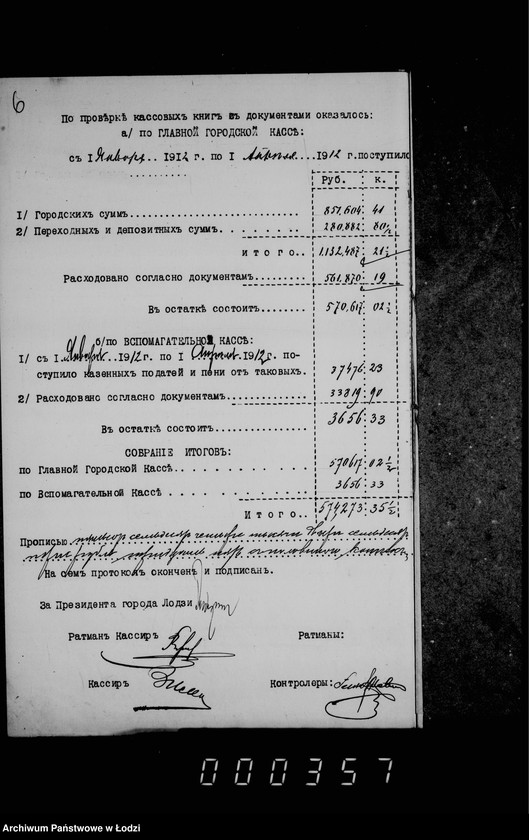 6
По провѣркѣ кассовыхъ книгъ съ документами оказалось:
а/ по ГЛАВНОЙ ГОРОДСКОЙ КАССѢ:
съ 1 Января.. 1912 г. по 1 Апрѣля....1912 г.поступило
Руб. к.
1/ Городскихъ суммъ............................ 851,604 41
2/ Переходныхъ и депозитныхъ суммъ. . . . . . . . 280,882 80½
и т о г о.. 1.132,487 21½
Расходовано согласно документамъ........ 561,870 19
Въ остаткѣ состоитъ........ 570,617 02½
б/по ВСПОМАГАТЕЛЬНОЙ КАССѢ:
1/ съ 1 Января..1912 г. по 1 Апрѣля 1912 г. по-
ступило казенныхъ податей и пени отъ таковыхъ. 37476 23
2/ Расходовано согласно документамъ............ 33819 90
Въ остаткѣ состоитъ.............. 3656 33
СОБРАНІЕ ИТОГОВЪ:
по Главной Городской Кассѣ. . . . . . . . . . . 570617 02½
по Вспомагательной Кассѣ . . . . . . . . . . . 3656 33
И т о г о.. 574273 35½
Прописью пятьсотъ семьдесятъ четыре тысячи двѣсти семьдесятъ
три рубля тридцать пять съ половиною копѣекъ
На семъ протоколъ оконченъ и подписанъ.
За Президента города Лодзи
Ратманъ Кассиръ Ратманы:
Кассиръ Контролеры:
000357
Archiwum Państwowe w Łodzi